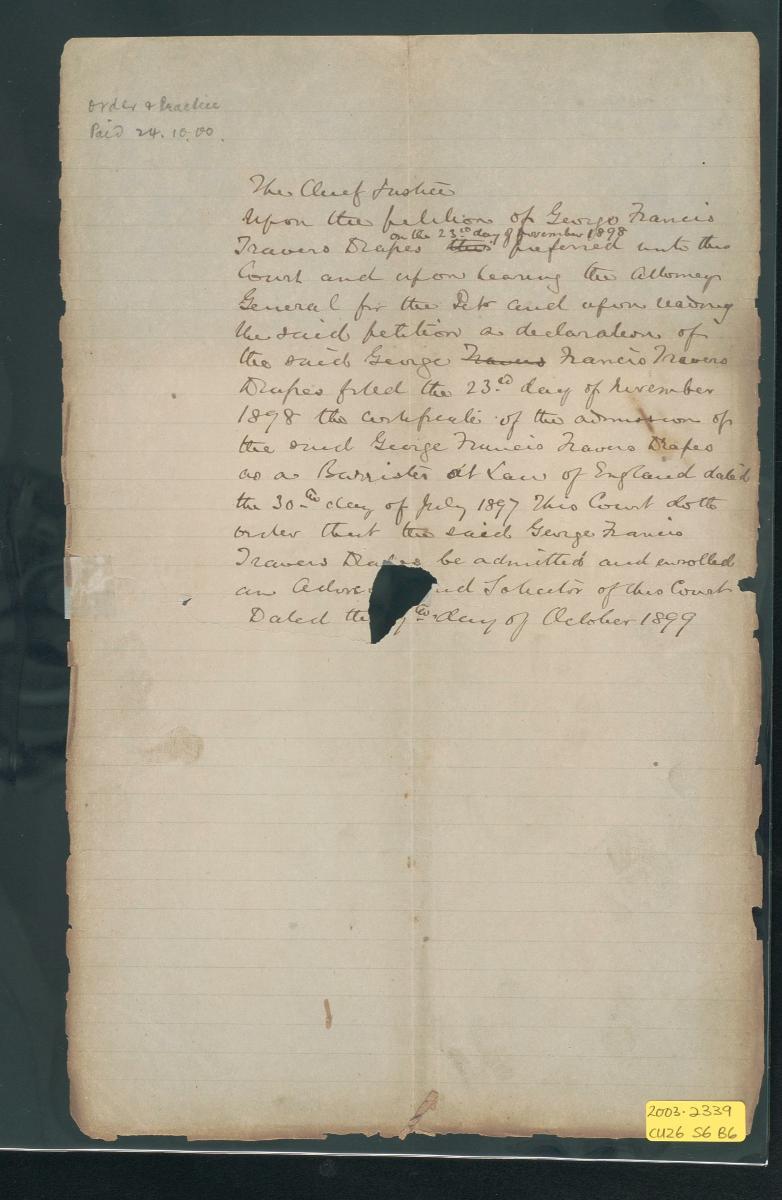 Order & Practice
Paid 24.10.00.
The Chief Justice
Upon the petition of George Francis
on the 23rd day of November 1898
Travers Drapes this preferred unto this
Court and upon hearing the Attorney
General for the Petr and upon reading
the said petition a declaration of
the said George Travers Francis Travers
Drapes filed the 23rd day of November
1898 the certificate of the admission of
the said George Francis Travers Drapes
as a Barrister at Law of England dated
the 30th day of July 1897 This Court doth
order that the said George Francis
Travers Drapes be admitted and enrolled
an Advoc nd Solicitor of this Court
Dated the th day of October 1899
2003.2339
CU26 S6 B6